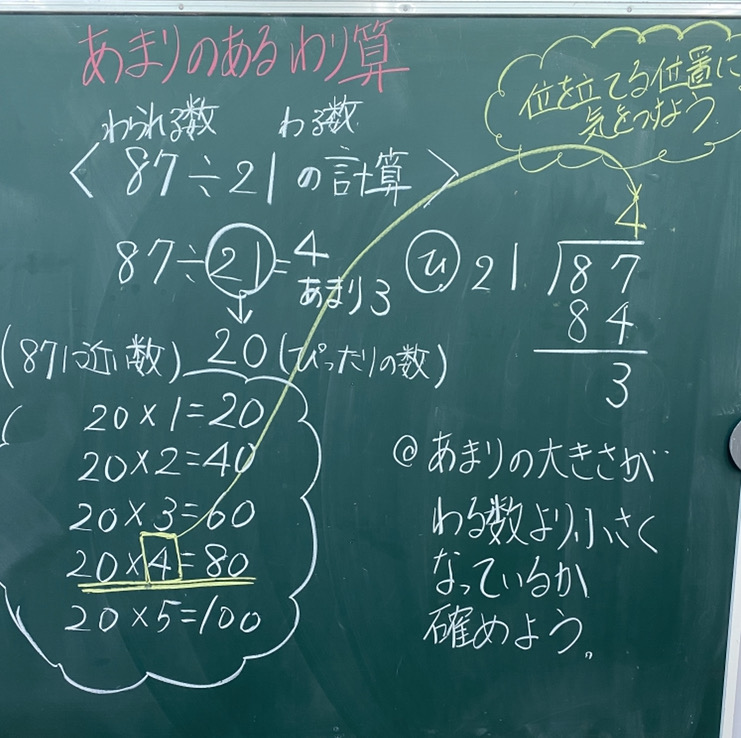 あまりのあるわり算
位を立てる位置に
気をつけよう
わられる数 わる数
〈 87÷21の計算 〉
87÷21=4
あまり3
20(ぴったりの数)
(87に近い数)
20×1=20
20×2=40
20×3=60
20×4=80
20×5=100
4
ひ 21 87
84
3
@あまりの大きさが
わる数より小さく
なっているか
確めよう。